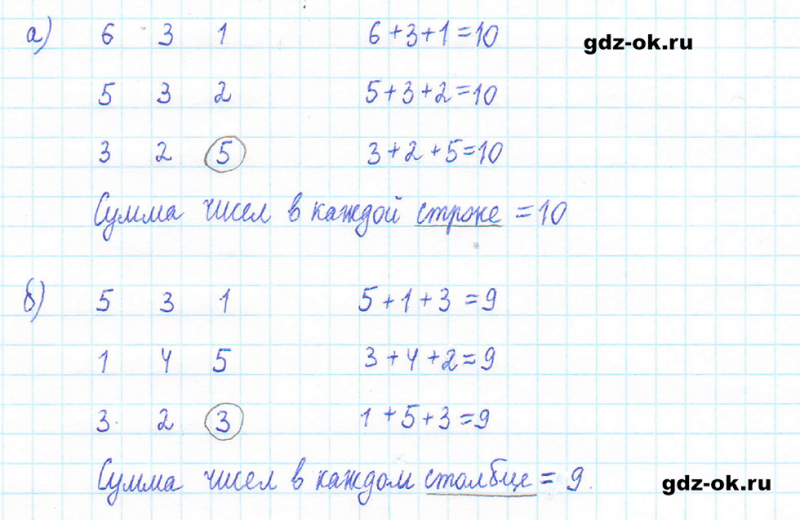 а) 6 3 1 6+3+1=10
gdz-ok.ru
5 3 2 5+3+2=10
3 2 5 3+2+5=10
Сумма чисел в каждой строке =10
б) 5 3 1 5+1+3=9
1 4 5 3+4+2=9
3 2 3 1+5+3=9
Сумма чисел в каждом столбце = 9.
gdz-ok.ru